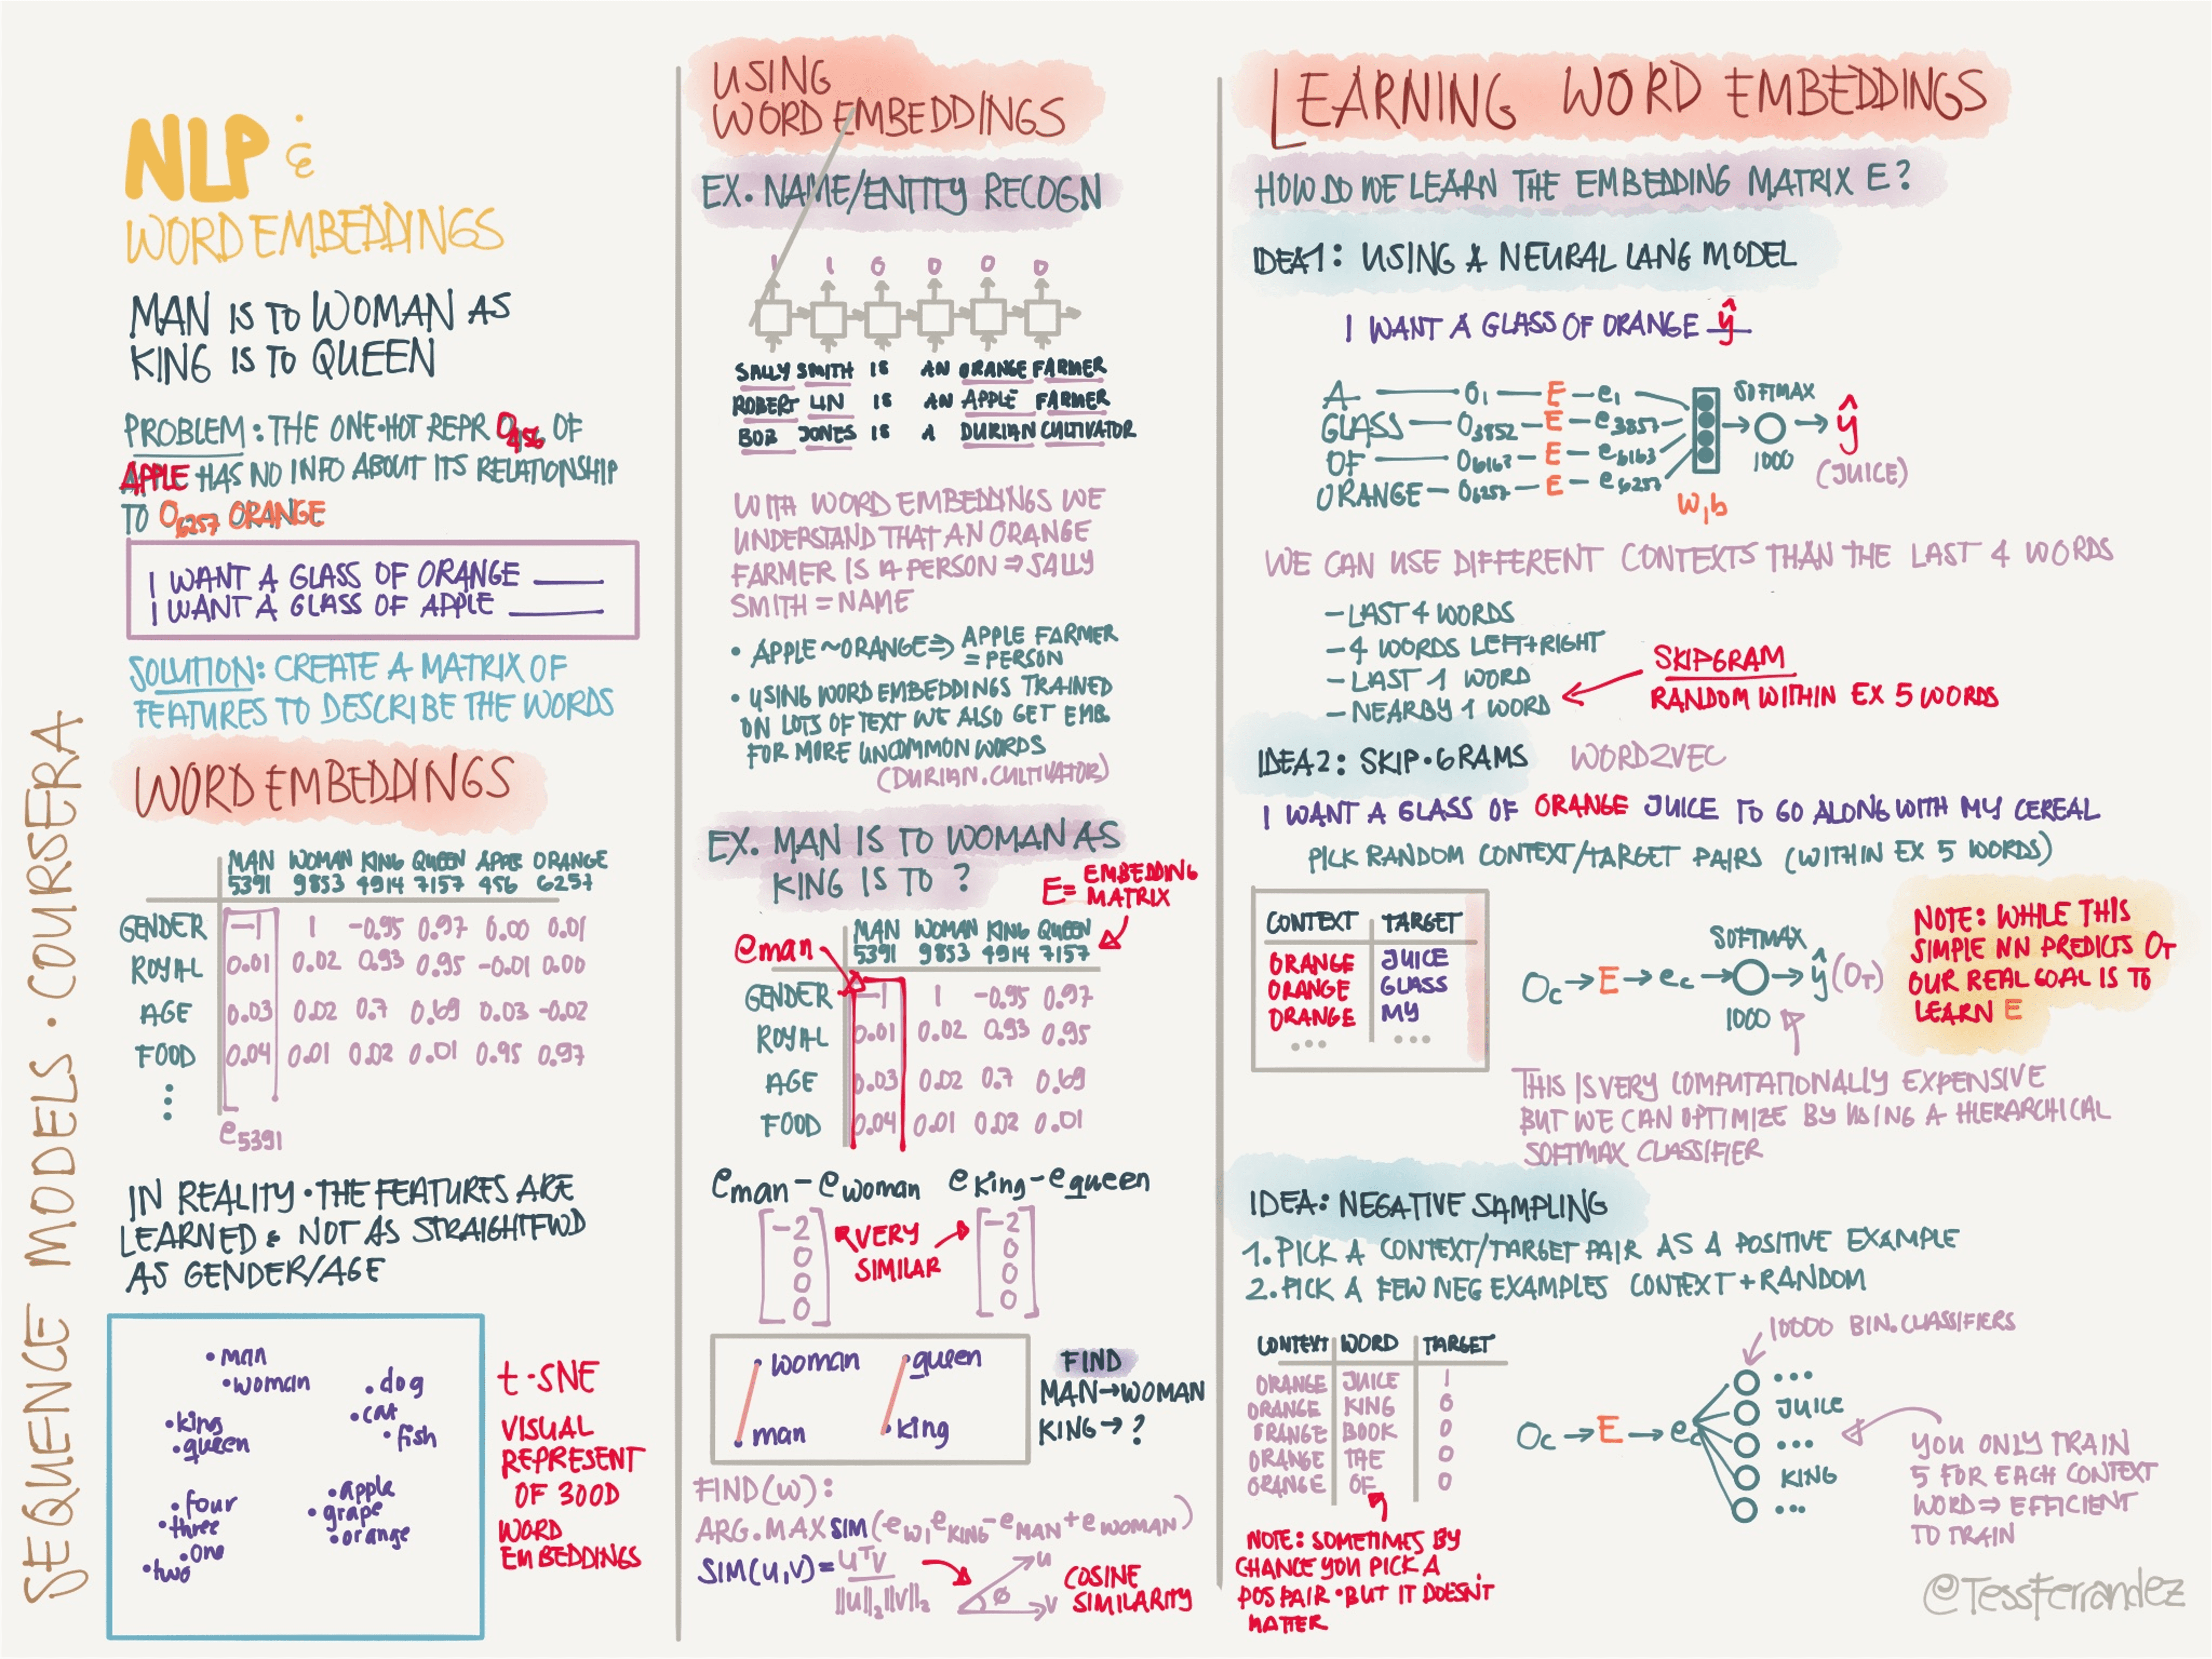 SEQUENCE MODELS · COURSERA
NLP &
WORD EMBEDDINGS
MAN IS TO WOMAN AS
KING IS TO QUEEN
PROBLEM: THE ONE·HOT REPR O456 OF
APPLE HAS NO INFO ABOUT ITS RELATIONSHIP
TO O6257 ORANGE
I WANT A GLASS OF ORANGE ____
I WANT A GLASS OF APPLE ____
SOLUTION: CREATE A MATRIX OF
FEATURES TO DESCRIBE THE WORDS
WORD EMBEDDINGS
MAN WOMAN KING QUEEN APPLE ORANGE
5391 9853 4914 7157 456 6257
GENDER -1 1 -0.95 0.97 0.00 0.01
ROYAL 0.01 0.02 0.93 0.95 -0.01 0.00
AGE 0.03 0.02 0.7 0.69 0.03 -0.02
FOOD 0.04 0.01 0.02 0.01 0.95 0.97
e5391
IN REALITY · THE FEATURES ARE
LEARNED & NOT AS STRAIGHTFWD
AS GENDER/AGE
• man
• woman
• dog
• cat
• fish
• king
• queen
• four
• three
• one
• two
• apple
• grape
• orange
t-SNE
VISUAL
REPRESENT
OF 300D
WORD
EMBEDDINGS
USING
WORD EMBEDDINGS
EX. NAME/ENTITY RECOGN
1 1 0 0 0 0
SALLY SMITH IS AN ORANGE FARMER
ROBERT LIN IS AN APPLE FARMER
BOB JONES IS A DURIAN CULTIVATOR
WITH WORD EMBEDDINGS WE
UNDERSTAND THAT AN ORANGE
FARMER IS A PERSON ⇒ SALLY
SMITH = NAME
• APPLE ~ ORANGE ⇒ APPLE FARMER
= PERSON
• USING WORD EMBEDDINGS TRAINED
ON LOTS OF TEXT WE ALSO GET EMB.
FOR MORE UNCOMMON WORDS
(DURIAN.CULTIVATOR)
EX. MAN IS TO WOMAN AS
KING IS TO ?
E = EMBEDDING
MATRIX
eman
MAN WOMAN KING QUEEN
5391 9853 4914 7157
GENDER -1 1 -0.95 0.97
ROYAL 0.01 0.02 0.93 0.95
AGE 0.03 0.02 0.7 0.69
FOOD 0.04 0.01 0.02 0.01
eman - ewoman eking - equeen
-2 -2
0 0
0 0
0 0
VERY
SIMILAR
• woman
• man
• queen
• king
FIND
MAN → WOMAN
KING → ?
FIND(W):
ARG.MAX SIM(eW, eKING - eMAN + eWOMAN)
SIM(U,V) = UᵀV
||U||2 ||V||2
u
φ
v
COSINE
SIMILARITY
LEARNING WORD EMBEDDINGS
HOW DO WE LEARN THE EMBEDDING MATRIX E?
IDEA1: USING A NEURAL LANG MODEL
I WANT A GLASS OF ORANGE ŷ
A — O1 — E — e1
GLASS — O3852 — E — e3857
OF — O6167 — E — e6163
ORANGE — O6257 — E — e6257
SOFTMAX
1000
W,b
ŷ
(JUICE)
WE CAN USE DIFFERENT CONTEXTS THAN THE LAST 4 WORDS
- LAST 4 WORDS
- 4 WORDS LEFT+RIGHT
- LAST 1 WORD
- NEARBY 1 WORD
SKIPGRAM
RANDOM WITHIN EX 5 WORDS
IDEA2: SKIP·GRAMS WORD2VEC
I WANT A GLASS OF ORANGE JUICE TO GO ALONG WITH MY CEREAL
PICK RANDOM CONTEXT/TARGET PAIRS (WITHIN EX 5 WORDS)
CONTEXT TARGET
ORANGE JUICE
ORANGE GLASS
ORANGE MY
... ...
SOFTMAX
Oc → E → ec → ○ → ŷ (OT)
1000
NOTE: WHILE THIS
SIMPLE NN PREDICTS OT
OUR REAL GOAL IS TO
LEARN E
THIS IS VERY COMPUTATIONALLY EXPENSIVE
BUT WE CAN OPTIMIZE BY USING A HIERARCHICAL
SOFTMAX CLASSIFIER
IDEA: NEGATIVE SAMPLING
1. PICK A CONTEXT/TARGET PAIR AS A POSITIVE EXAMPLE
2. PICK A FEW NEG EXAMPLES CONTEXT + RANDOM
CONTEXT WORD TARGET
ORANGE JUICE 1
ORANGE KING 0
ORANGE BOOK 0
ORANGE THE 0
ORANGE OF 0
NOTE: SOMETIMES BY
CHANCE YOU PICK A
POS PAIR · BUT IT DOESN'T
MATTER
10000 BIN.CLASSIFIERS
Oc → E → ec
...
JUICE
...
KING
...
YOU ONLY TRAIN
5 FOR EACH CONTEXT
WORD ⇒ EFFICIENT
TO TRAIN
@TessFerrandez